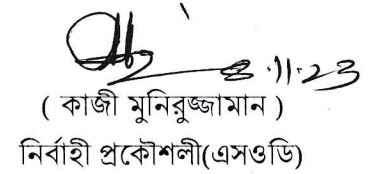 8.11.23
( কাজী মুনিরুজ্জামান )
নির্বাহী প্রকৌশলী(এসওডি)